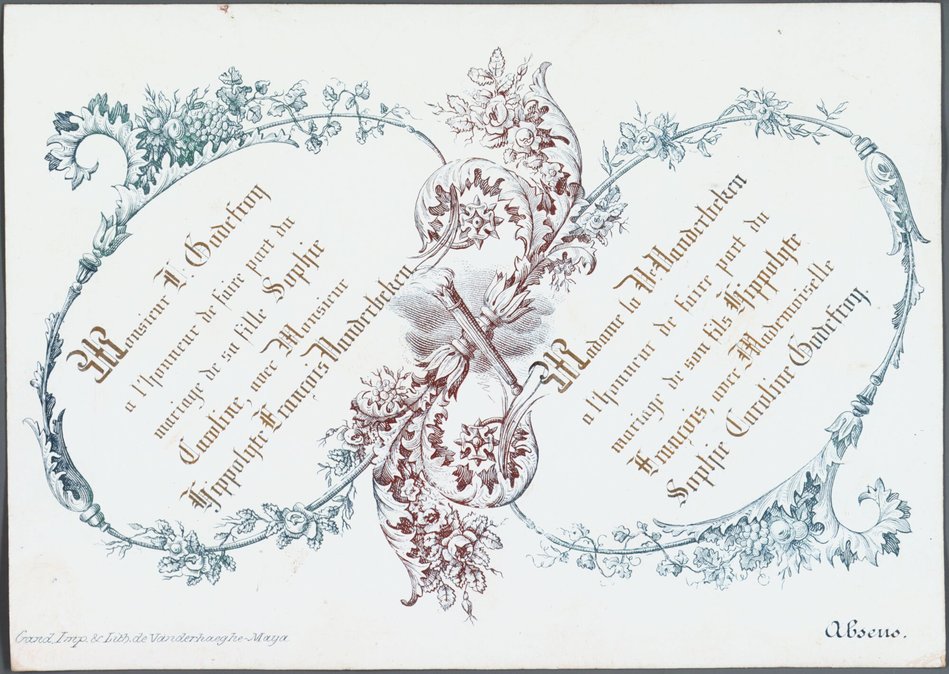 Monsieur J. Godefroy
a l'honneur de faire part du
mariage de sa fille Sophie
Caroline, avec Monsieur
Hippolyte François Vanderbeken.
Madame la Ve Vanderbeken
a l'honneur de faire part du
mariage de son fils Hippolyte
François, avec Mademoiselle
Sophie Caroline Godefroy.
Gand, Imp. & Lith. de Vanderhaeghe-Maya
Absens.